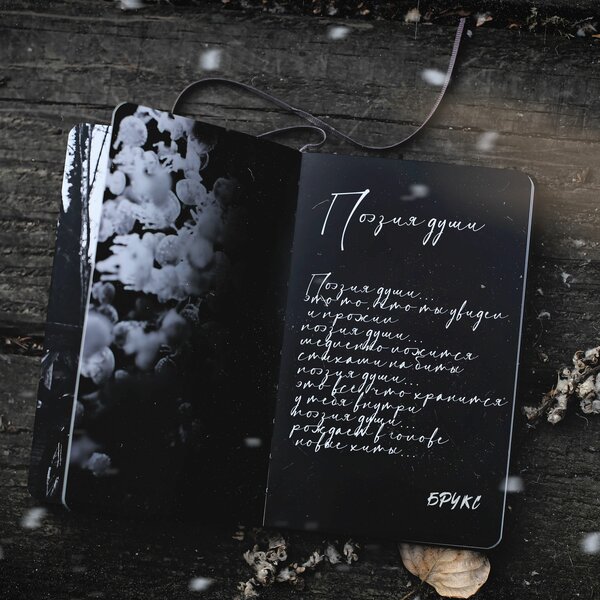 Поэзия души
Поэзия души...
это то, что ты увидел
и прожил
поэзия души...
медленно ложится
стихами на биты
поэзия души...
это всё, что хранится
у тебя внутри
поэзия души...
рождает в голове
новые хиты...
БРУКС